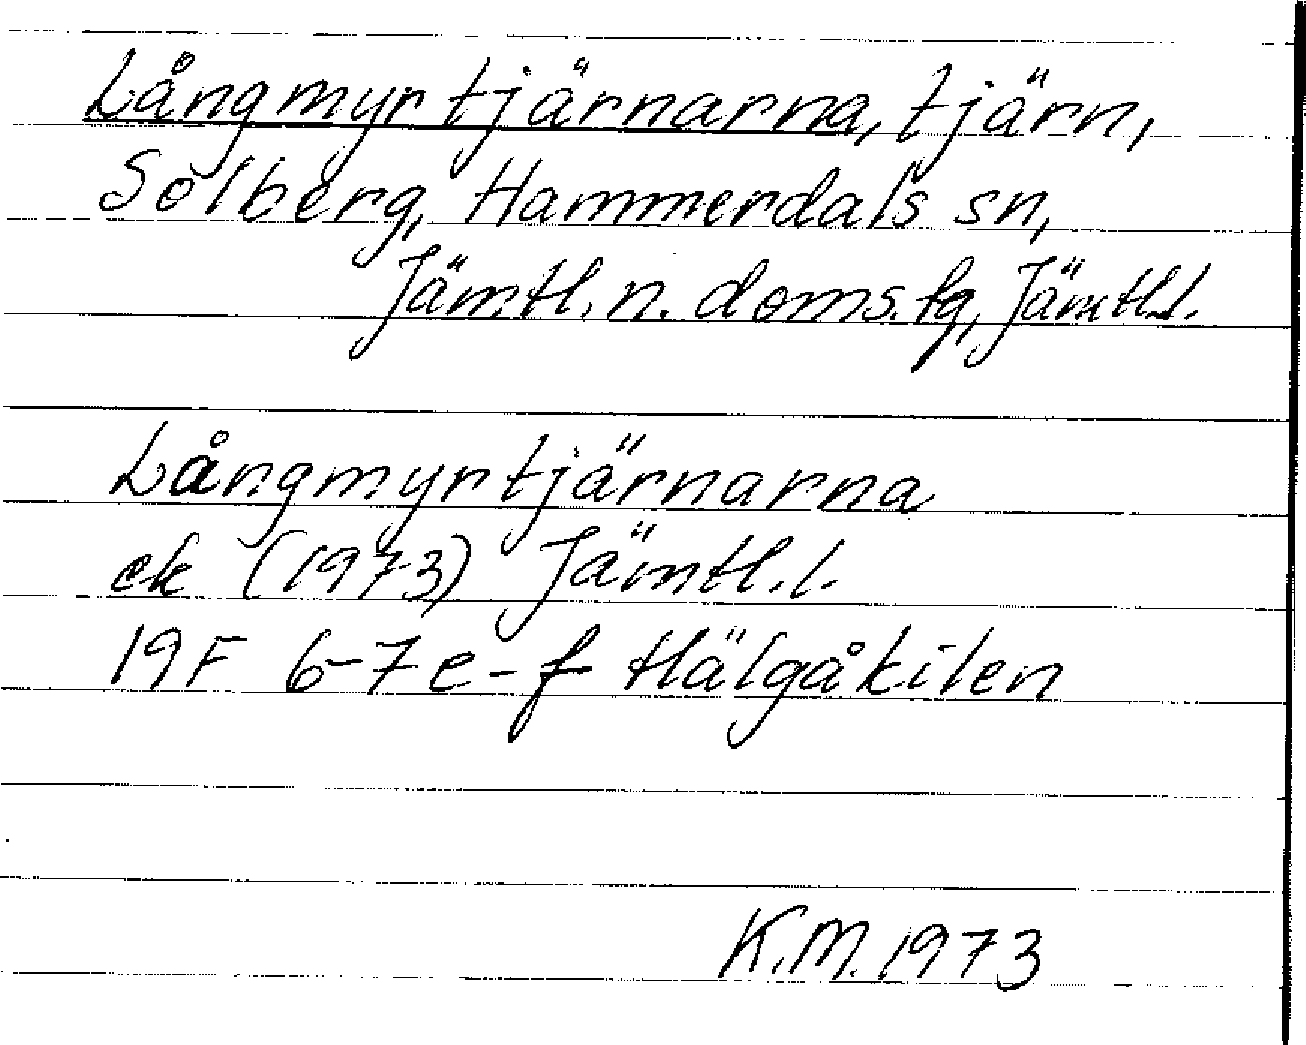 Långmyrtjärnarna, tjärn,
Solberg, Hammerdals sn,
Jämtl. n. doms. fg, Jämtl.l.
Långmyrtjärnarna
ek (1973) Jämtl.l.
19F 6-7e-f Hälgåkilen
K.M. 1973